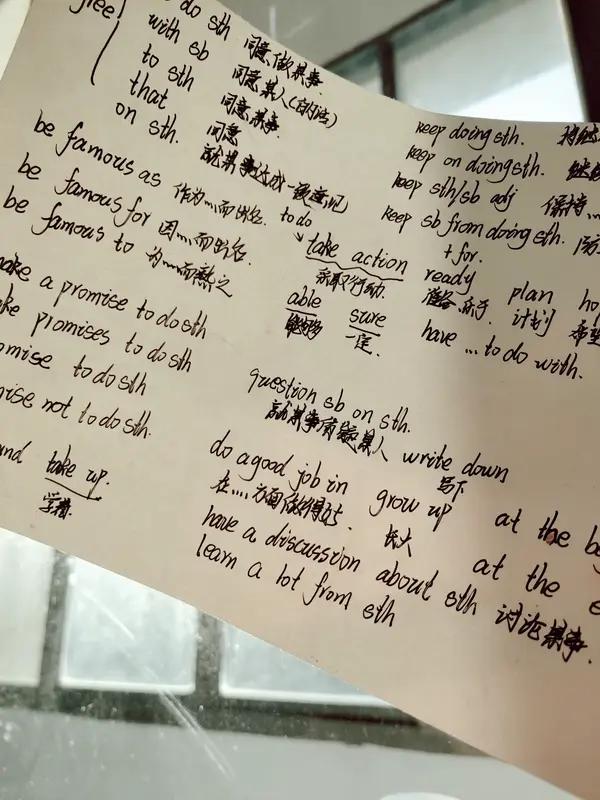 to do sth 同意做某事
with sb 同意某人(的看法)
to sth 同意某事
that 同意
on sth. 就某事达成一致意见
be famous as 作为...而出名.
be famous for 因...而出名.
be famous to 为...而熟之
make a promise to do sth
make promises to do sth
promise to do sth
promise not to do sth.
and take up.
学着.
keep doing sth.
keep on doing sth.
keep sth/sb adj 保持...
keep sb from doing sth.
to do
+ for.
take action ready plan
采取行动. 准备.乐于. 计划
able sure have ... to do with.
能够 一定.
question sb on sth.
就某事质疑某人 write down
写下
do a good job in grow up at the
在...方面做得好. 长大
have a discussion about sth 讨论某事.
at the
learn a lot from sth